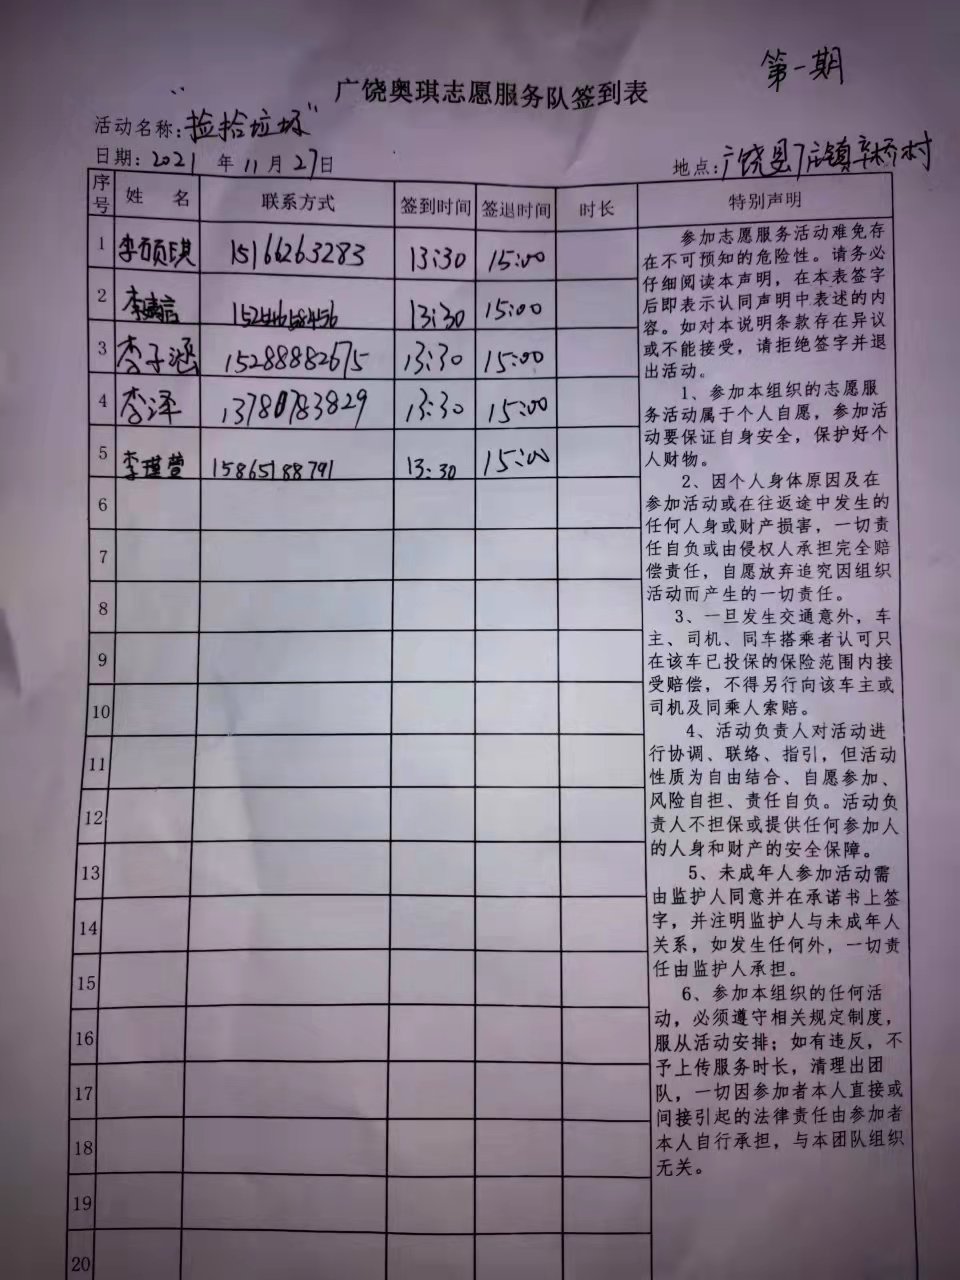 第一期
广饶奥琪志愿服务队签到表
活动名称:“捡拾垃圾”
日期:2021 年 11 月 27 日
地点:广饶县 镇 村
序号 姓 名 联系方式 签到时间 签退时间 时长 特别声明
1 李硕琪 15166263283 13:30 15:00
2 李 言 13:30 15:00
3 李子涵 15288882675 13:30 15:00
4 李泽 13780783829 13:30 15:00
5 李瑾萱 15865188791 13:30 15:00
6
7
8
9
10
11
12
13
14
15
16
17
18
19
20
参加志愿服务活动难免存
在不可预知的危险性。请务必
仔细阅读本声明，在本表签字
后即表示认同声明中表述的内
容。如对本说明条款存在异议
或不能接受，请拒绝签字并退
出活动。
1、参加本组织的志愿服
务活动属于个人自愿，参加活
动要保证自身安全，保护好个
人财物。
2、因个人身体原因及在
参加活动或在往返途中发生的
任何人身或财产损害，一切责
任自负或由侵权人承担完全赔
偿责任，自愿放弃追究因组织
活动而产生的一切责任。
3、一旦发生交通意外，车
主、司机、同车搭乘者认可只
在该车已投保的保险范围内接
受赔偿，不得另行向该车主或
司机及同乘人索赔。
4、活动负责人对活动进
行协调、联络、指引，但活动
性质为自由结合、自愿参加、
风险自担、责任自负。活动负
责人不担保或提供任何参加人
的人身和财产的安全保障。
5、未成年人参加活动需
由监护人同意并在承诺书上签
字，并注明监护人与未成年人
关系，如发生任何外，一切责
任由监护人承担。
6、参加本组织的任何活
动，必须遵守相关规定制度，
服从活动安排；如有违反，不
予上传服务时长，清理出团
队，一切因参加者本人直接或
间接引起的法律责任由参加者
本人自行承担，与本团队组织
无关。